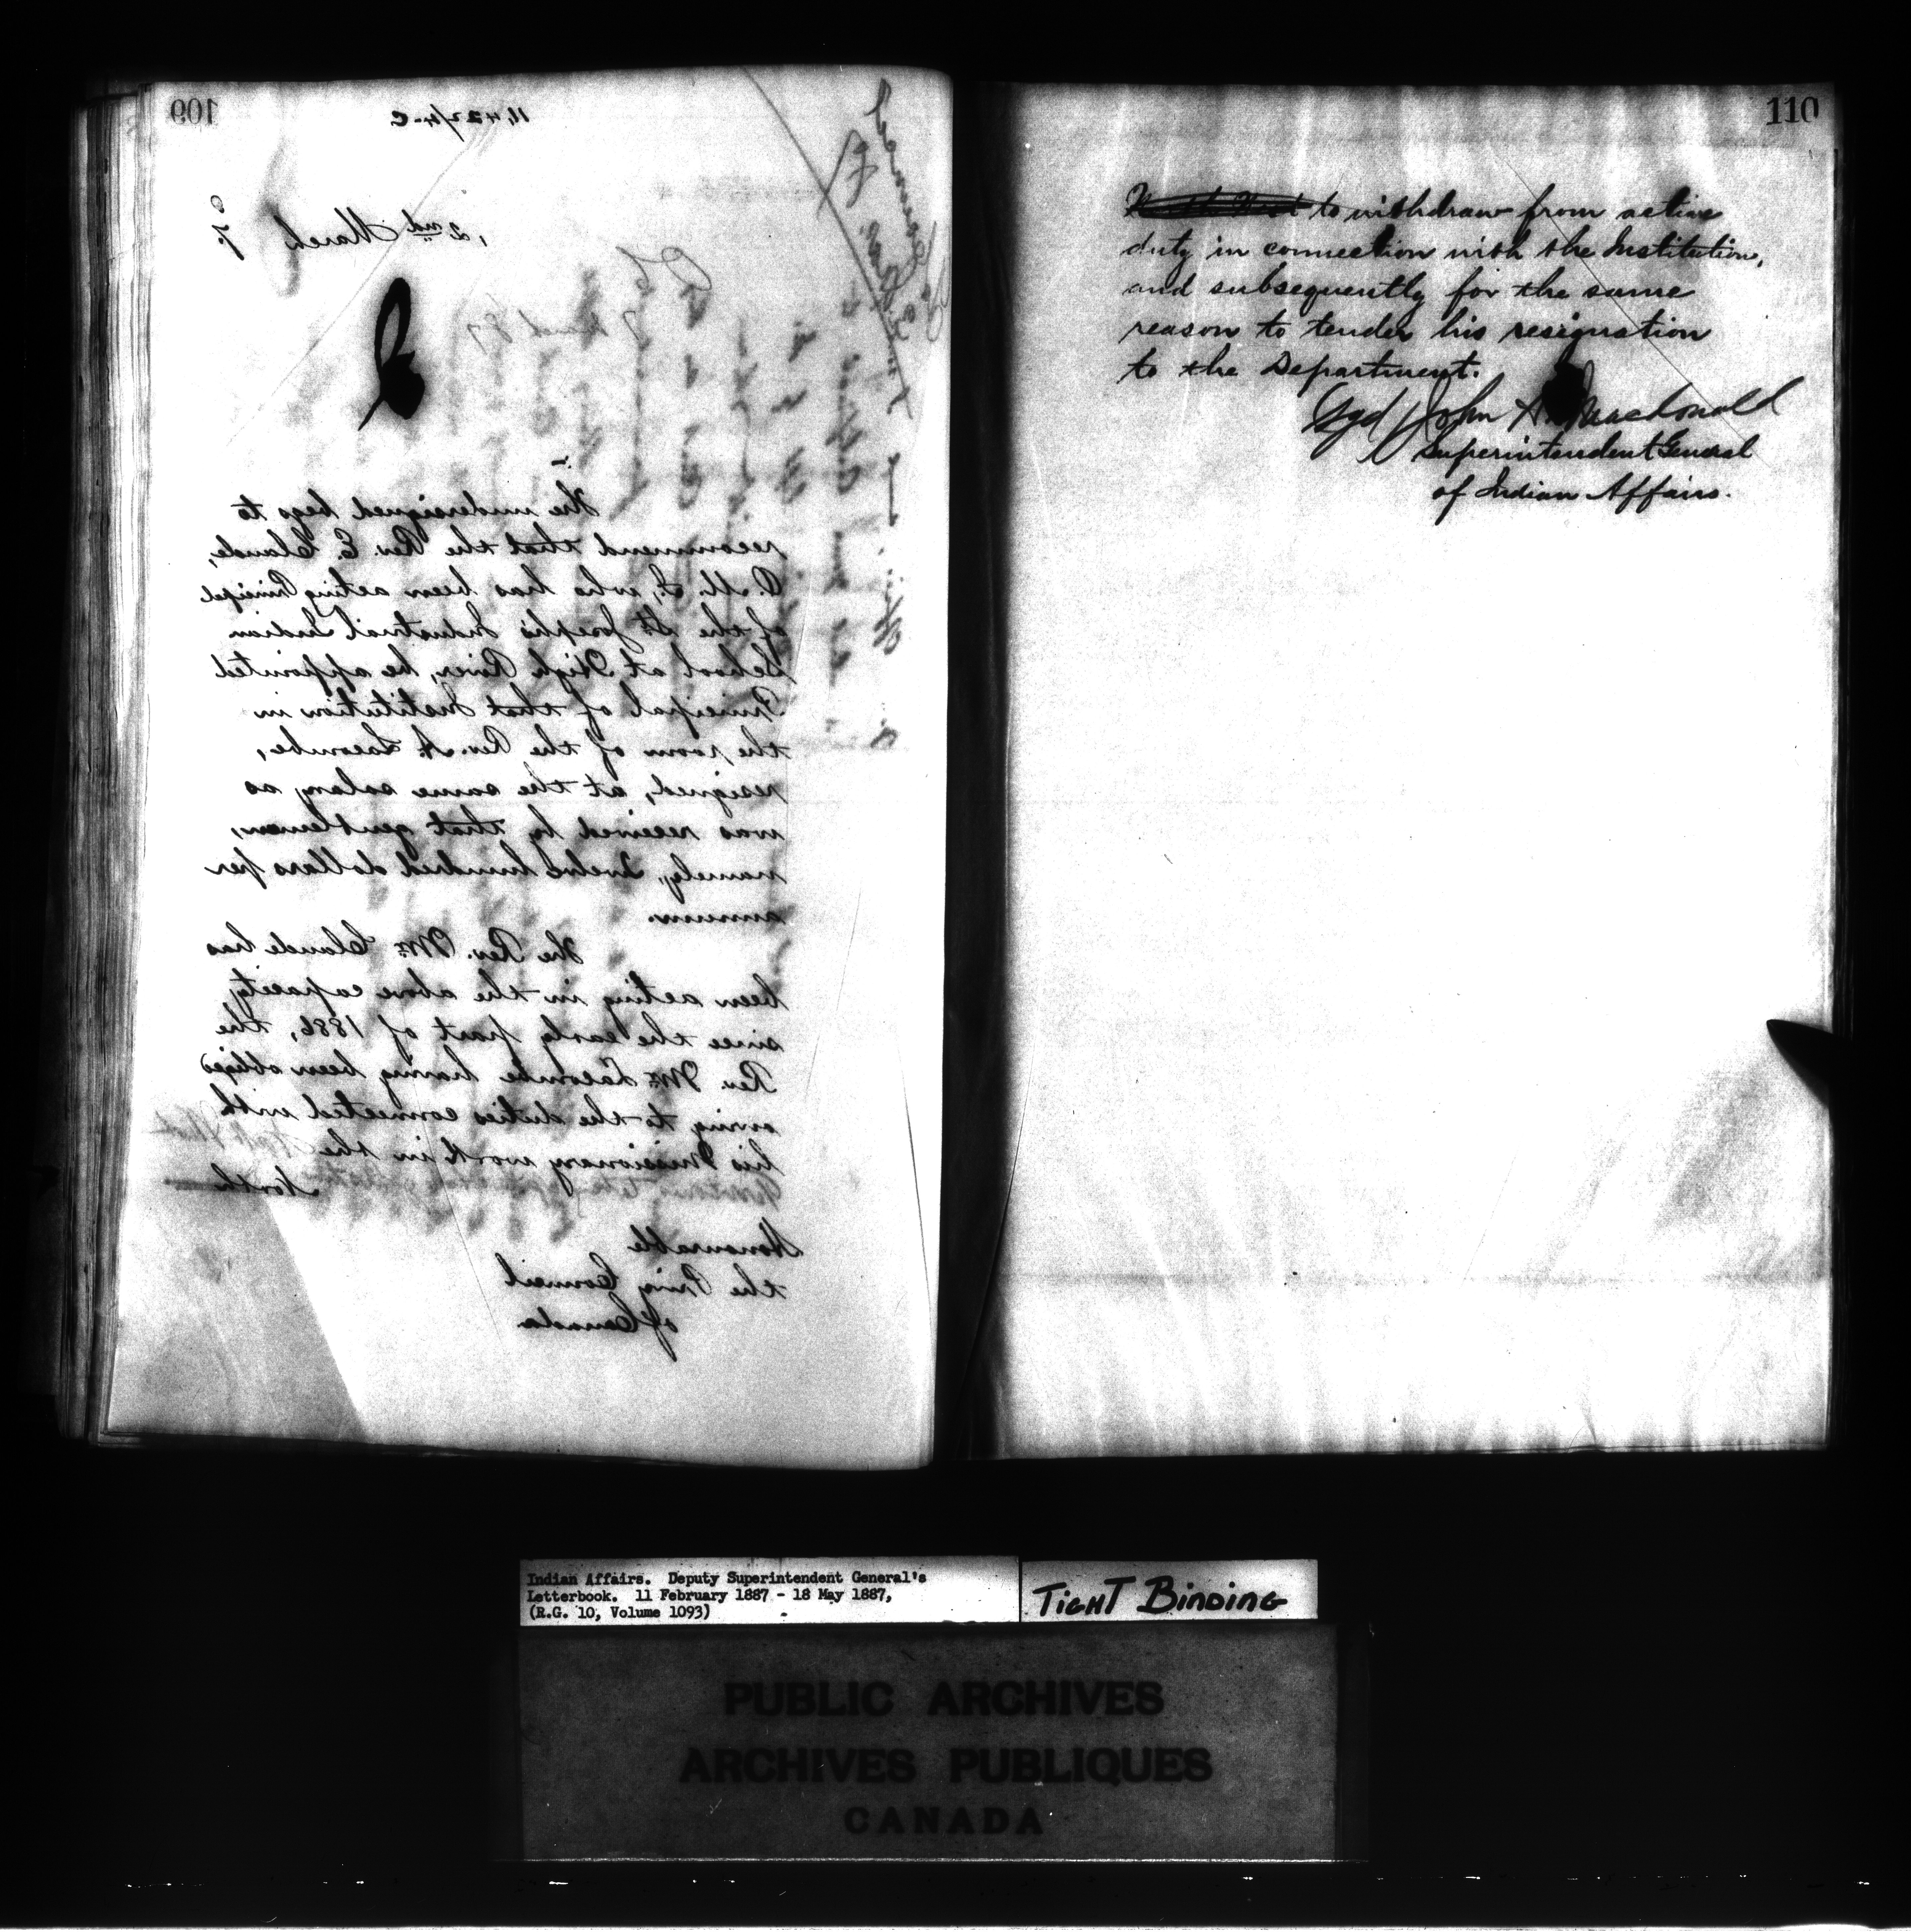 109
11,422/4.C
, 2nd March 7.
The undersigned begs to
recommend that the Rev. E. Claude,
O.M.I., who has been acting Principal
of the St. Joseph's Industrial Indian
School at High River, be appointed
Principal of that Institution in
the room of the Rev. A. Lacombe,
resigned, at the same salary as
was received by that gentleman,
namely, Twelve hundred dollars per
annum.
The Rev. Mr. Claude has
been acting in the above capacity
since the early part of 1886, the
Rev. Mr. Lacombe having been obliged
owing to the duties connected with
his Missionary work in the
North
Honourable
the Privy Council
of Canada
110
to withdraw from active
duty in connection with the Institution,
and subsequently for the same
reason to tender his resignation
to the Department.
Sgd John A. Macdonald
Superintendent General
of Indian Affairs.
Indian Affairs. Deputy Superintendent General's
Letterbook. 11 February 1887 - 18 May 1887,
(R.G. 10, Volume 1093)
TIGHT BINDING
PUBLIC ARCHIVES
ARCHIVES PUBLIQUES
CANADA